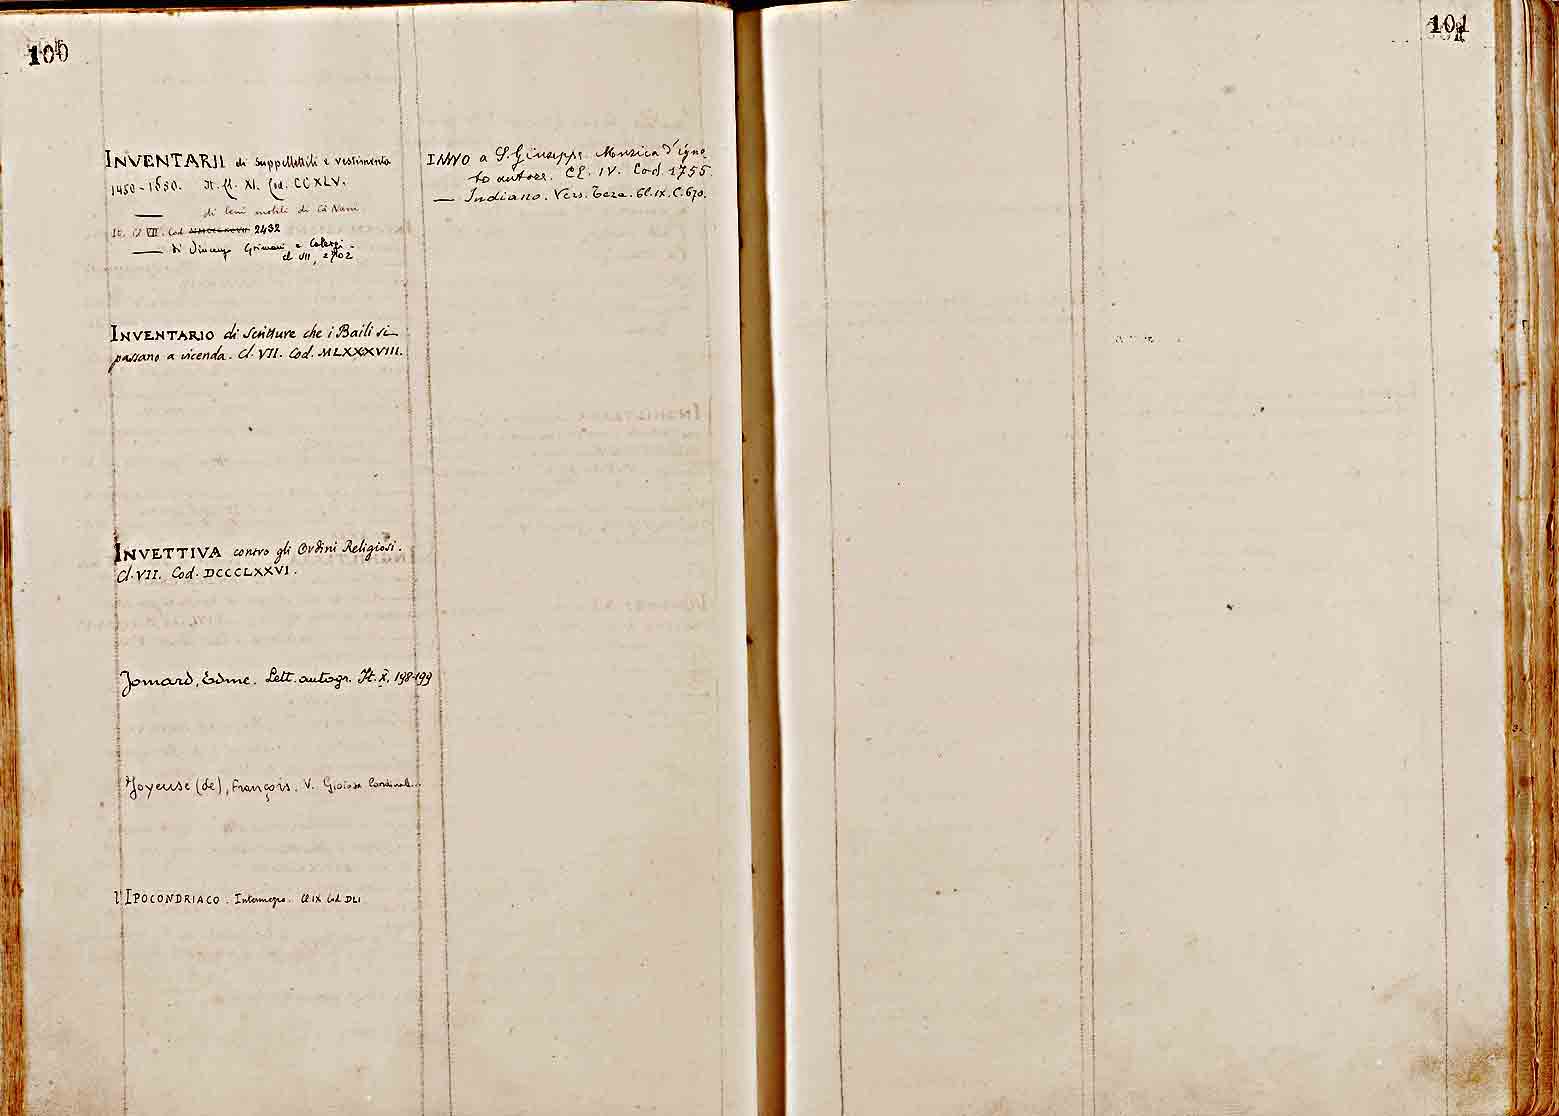 100
INVENTARII di suppellettili e vestimenta
1450-1550. It. Cl. XI. Cod. CCXLV.
— di beni mobili di Cà Nani
It. Cl VII. Cod 2432
— di Vincenzo Grimani e Calergi.
cl VII, 2702
INVENTARIO di scritture che i Baili si
passano a vicenda. Cl. VII. Cod. MLXXXVIII.
INVETTIVA contro gli Ordini Religiosi.
Cl. VII. Cod. DCCCLXXVI.
Jomard, Edme. Lett. autogr. It. X, 198-199
Joyeuse (de), François. V. Gioiosa Cardinale...
l'IPOCONDRIACO. Intermezzo. Cl IX Cod DLI
INNO a S. Giuseppe. Musica d'igno-
to autore. Cl. IV. Cod. 1755.
— Indiano. Vers. Teza. Cl. IX. C. 670.
101